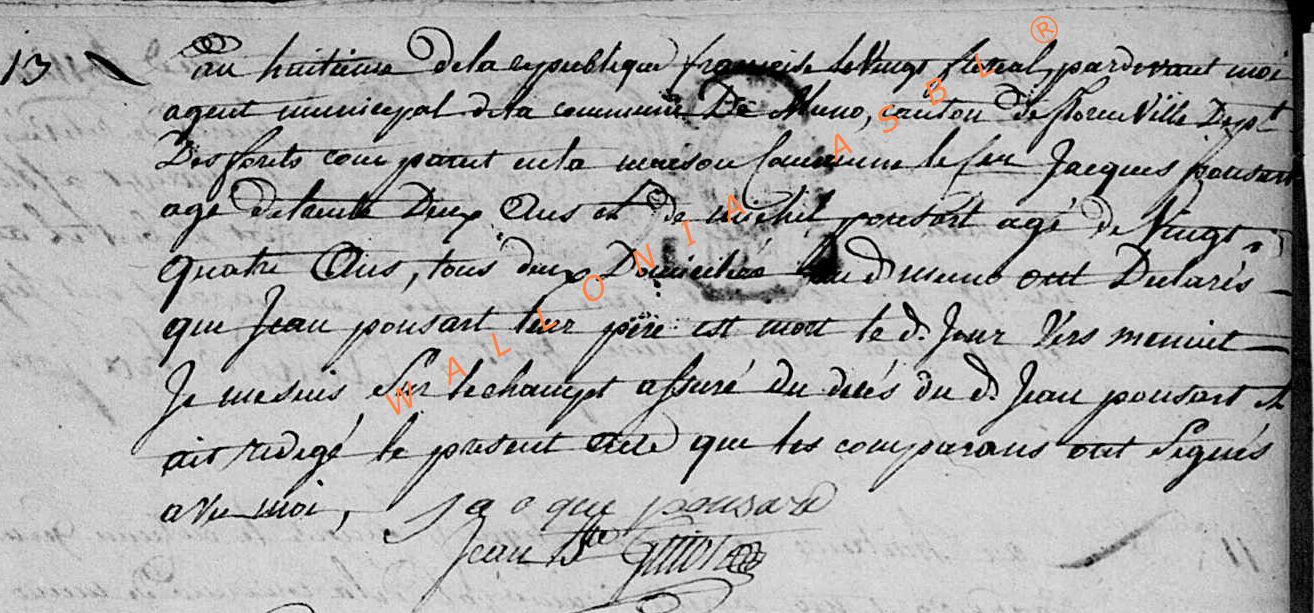 13
an huitieme de la republique françoise le vingt floreal, pardevant moi
agent municipal de la commune De Muno, canton de florenville Dept
Des forets comparut en la maison Commune le cen Jacques ponsart
agé de trente Deux Ans et de michel ponsart agé de Vingt
quatre Ans, tous deux Domiciliés d muno ont Declarés
que Jean ponsart leur pere est mort le d. Jour vers menuit
Je me suis sur le champt assuré du decés du d Jean ponsart et
ait redigé le present acte que les comparans ont Signés
avec moi, jacque ponsard
Jean Bte
11
WALLONIA ASBL ®